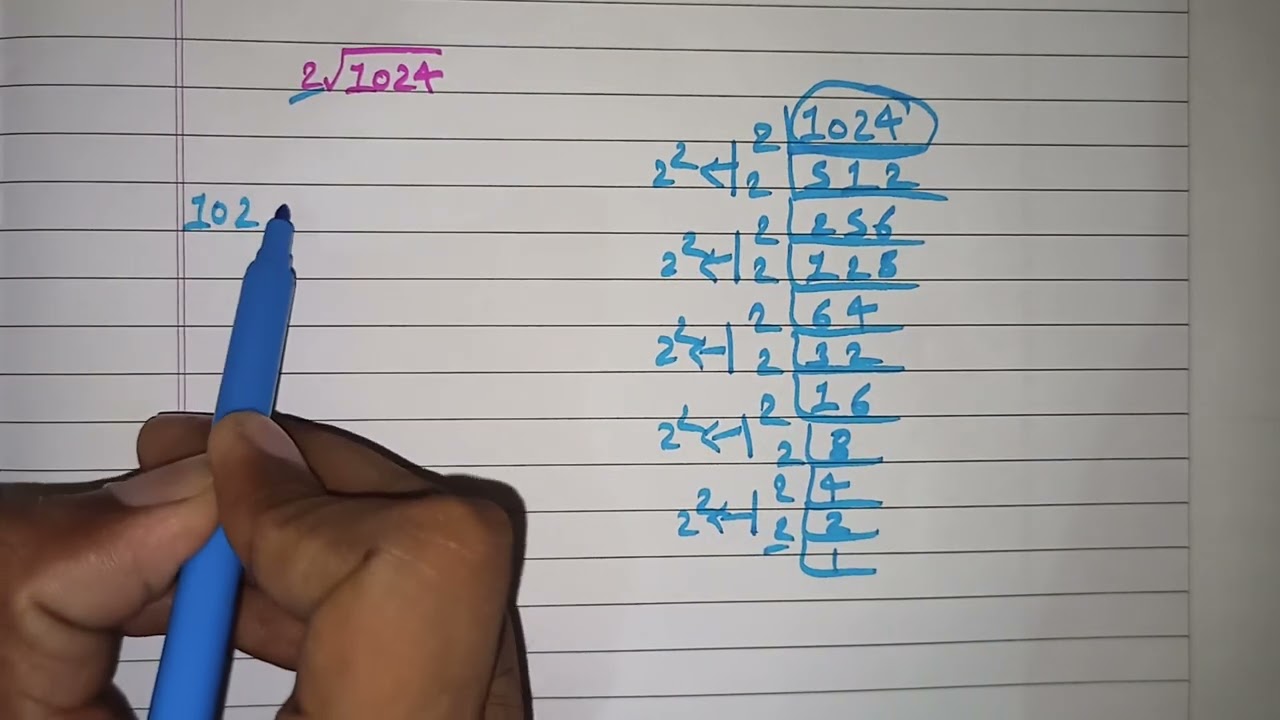 2√1024
102
2 | 1024
2² ← 2 | 512
2 | 256
2² ← 2 | 128
2 | 64
2² ← 2 | 32
2 | 16
2² ← 2 | 8
2 | 4
2² ← 2 | 2
1